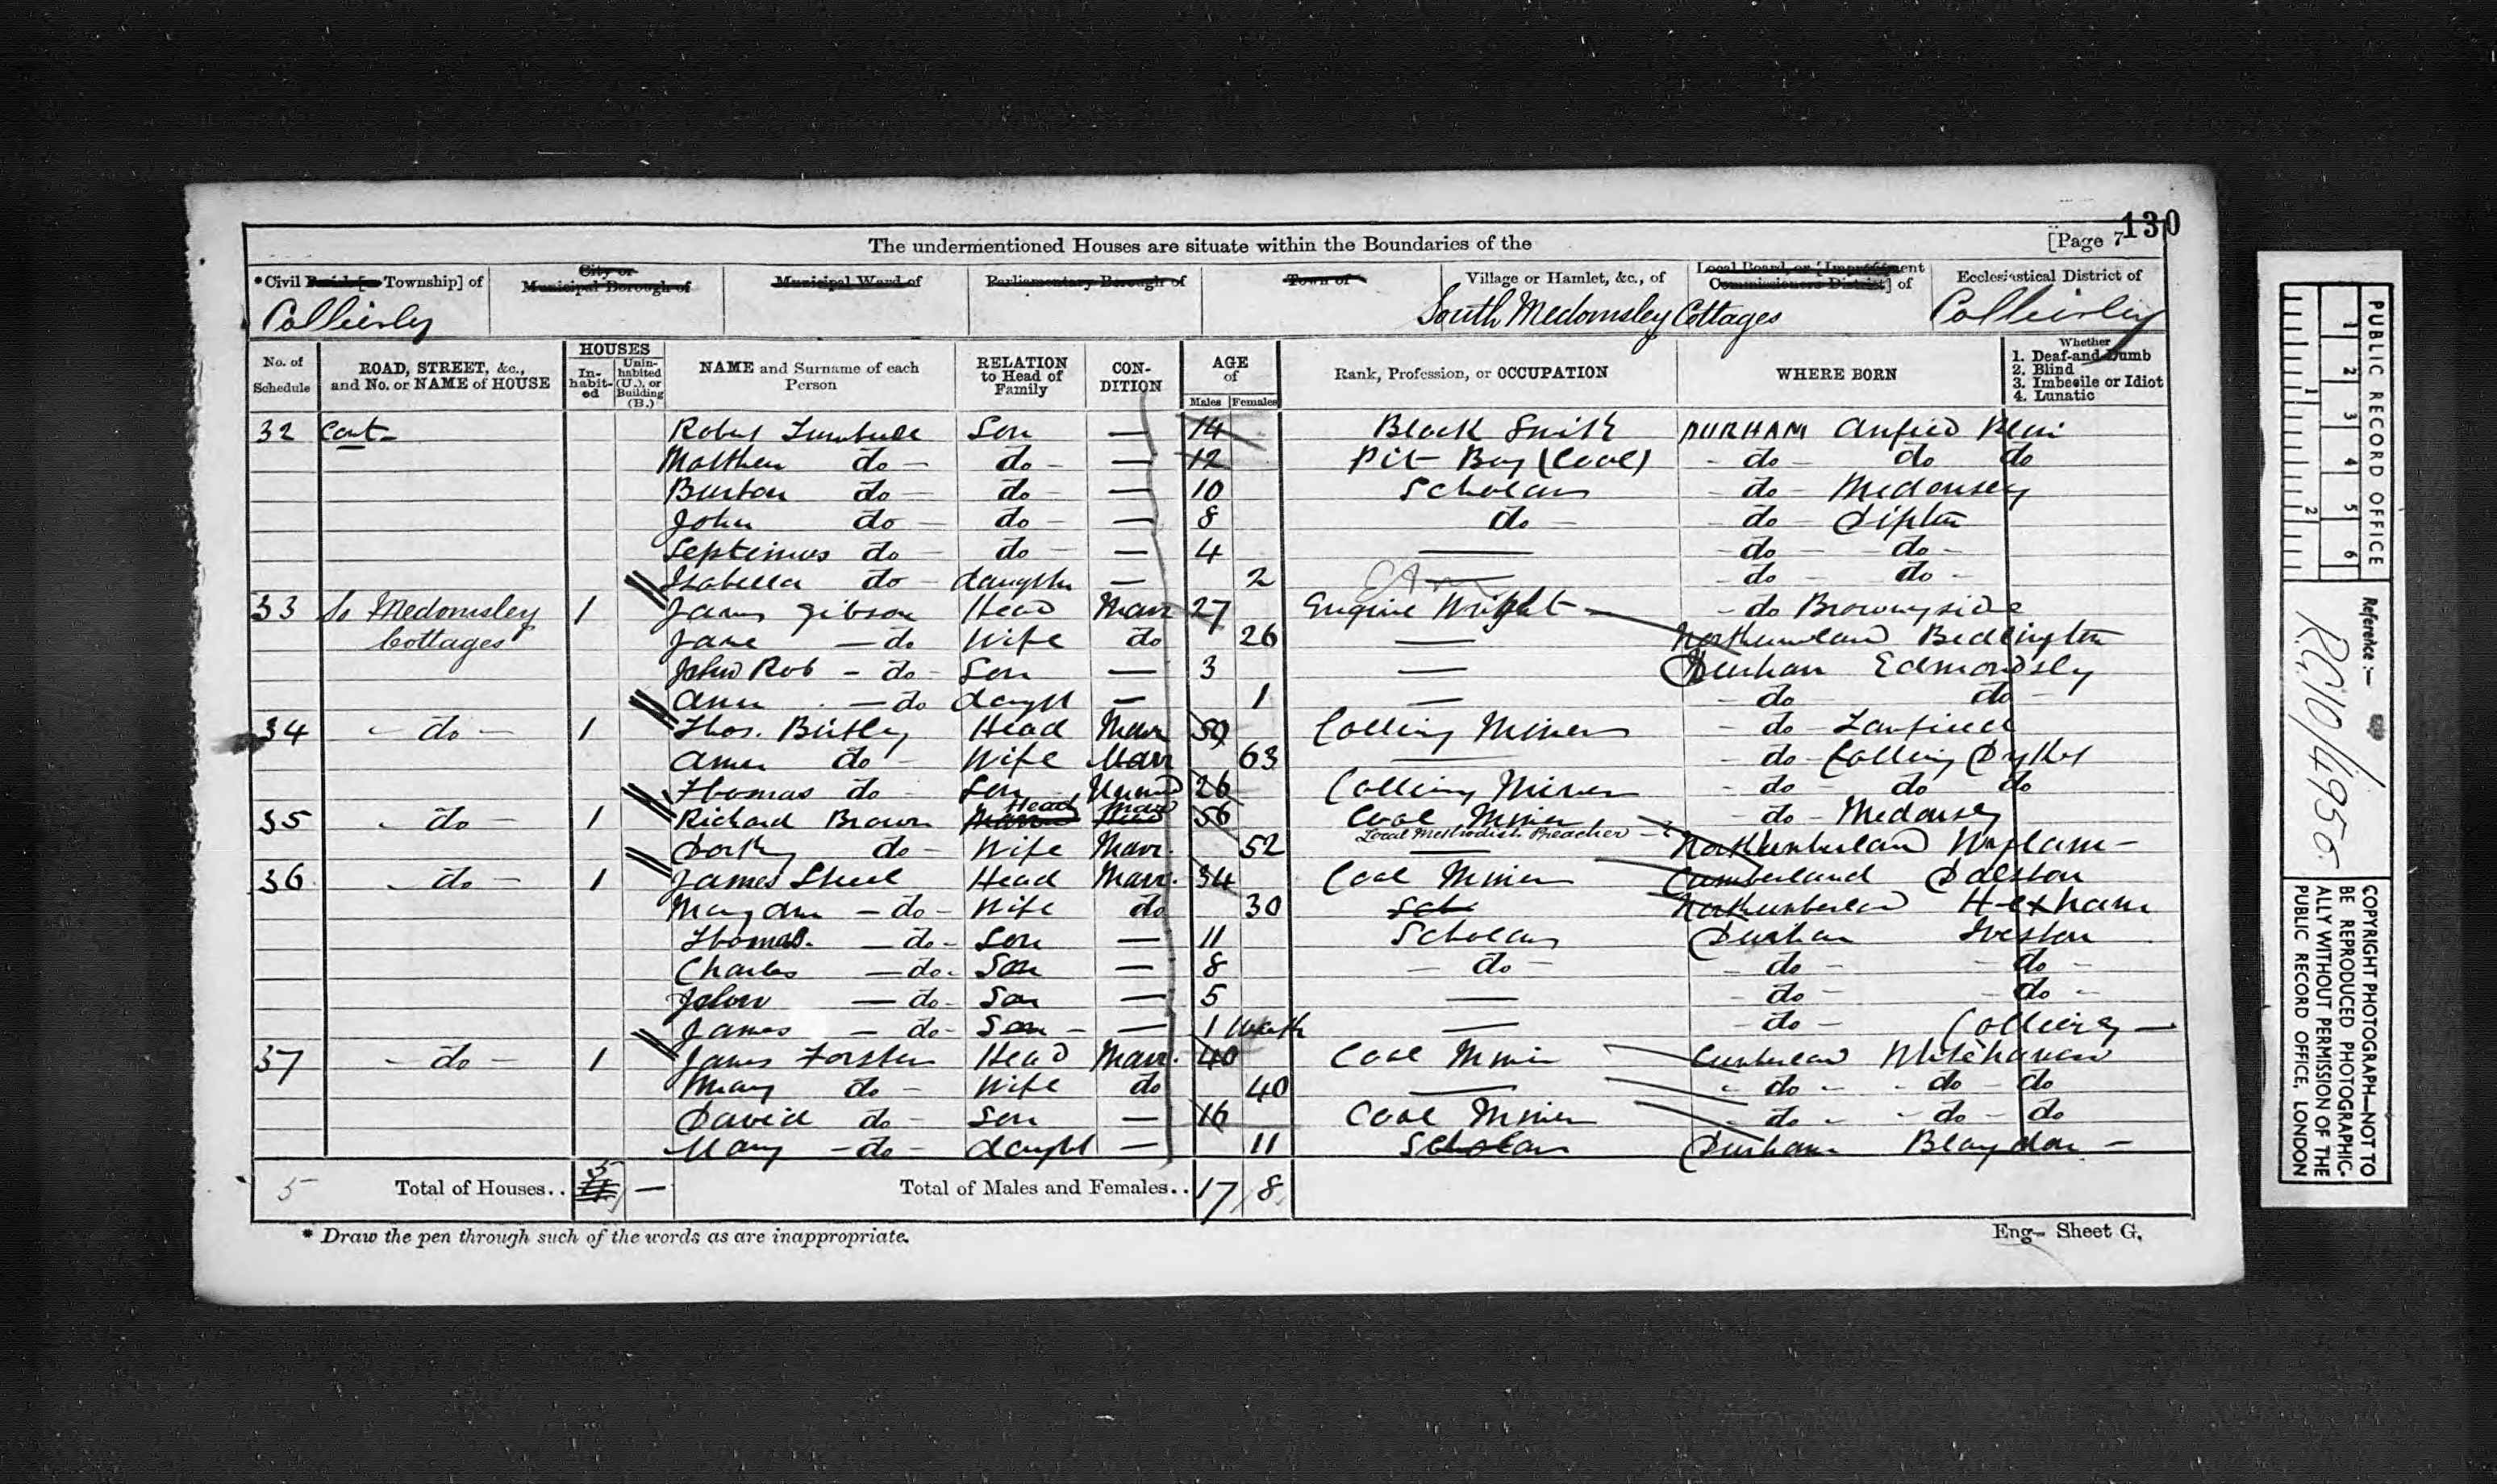 130
The undermentioned Houses are situate within the Boundaries of the [Page 7
*Civil Parish [or Township] of City or Municipal Borough of Municipal Ward of Parliamentary Borough of Town of Village or Hamlet, &c., of Local Board, or [Improvement Commissioners District] of Ecclesiastical District of
Collierley South Medomsley Cottages Collierley
No. of Schedule ROAD, STREET, &c., and No. or NAME of HOUSE HOUSES Inhabited Uninhabited (U.), or Building (B.) NAME and Surname of each Person RELATION to Head of Family CONDITION AGE of Males Females Rank, Profession, or OCCUPATION WHERE BORN Whether 1. Deaf-and-Dumb 2. Blind 3. Imbecile or Idiot 4. Lunatic
32 Cont- Robert Turnbull Son — 14 Black Smith DURHAM Anfied Plain
Matthew do — do — — 12 Pit Boy (Coal) - do - do do
Burton do — do — — 10 Scholar - do - Medomsey
John do — do — — 8 do — - do - Dipton
Septimus do — do — — 4 — - do - do -
Isabella do - daughter — 2 — - do - do -
33 So Medomsley Cottages 1 James Gibson Head Marr 27 Engine Wright - do Brownyside
Jane — do Wife do 26 — Northumberland Bedlington
John Rob - do - Son — 3 — Durham Edmondsly
Ann — do daught — 1 — - do - do -
34 - do - 1 Thos. Head Marr 59 Miner - do - Lanfield
do - Wife Marr 63 — - do -
Thomas do Son Unmd 26 Miner - do - do do
35 - do - 1 Richard Brown Head Marr 56 Coal Miner - do - Medomsey
Local Methodist Preacher
Dorthy do - Wife Marr. 52 — Northumberland Wylam -
36 - do - 1 James Head Marr. 34 Coal Miner Cumberland Dalston
Mary Ann - do - Wife do 30 Sch Northumberland Hexham
Thomas. — do - Son — 11 Scholar Durham Iveston
Charles — do. Son — 8 — do — - do - - do -
John — do - Son — 5 — - do - - do -
James — do - Son - — 1 Month — - do -
37 - do - 1 James Forster Head Marr. 40 Coal Miner Cumberland Whitehaven
Mary do - Wife do 40 — - do - - do - do
David do - Son — 16 Coal Miner - do - - do - do
Mary - do - daught — 11 Scholar Durham Blaydon -
5 Total of Houses.. 5 — Total of Males and Females.. 17 8
* Draw the pen through such of the words as are inappropriate.
Eng- Sheet G.
PUBLIC RECORD OFFICE
1 2 3 4 5 6
1 2
Reference :-
RG10/4956
COPYRIGHT PHOTOGRAPH—NOT TO
BE REPRODUCED PHOTOGRAPHIC-
ALLY WITHOUT PERMISSION OF THE
PUBLIC RECORD OFFICE, LONDON